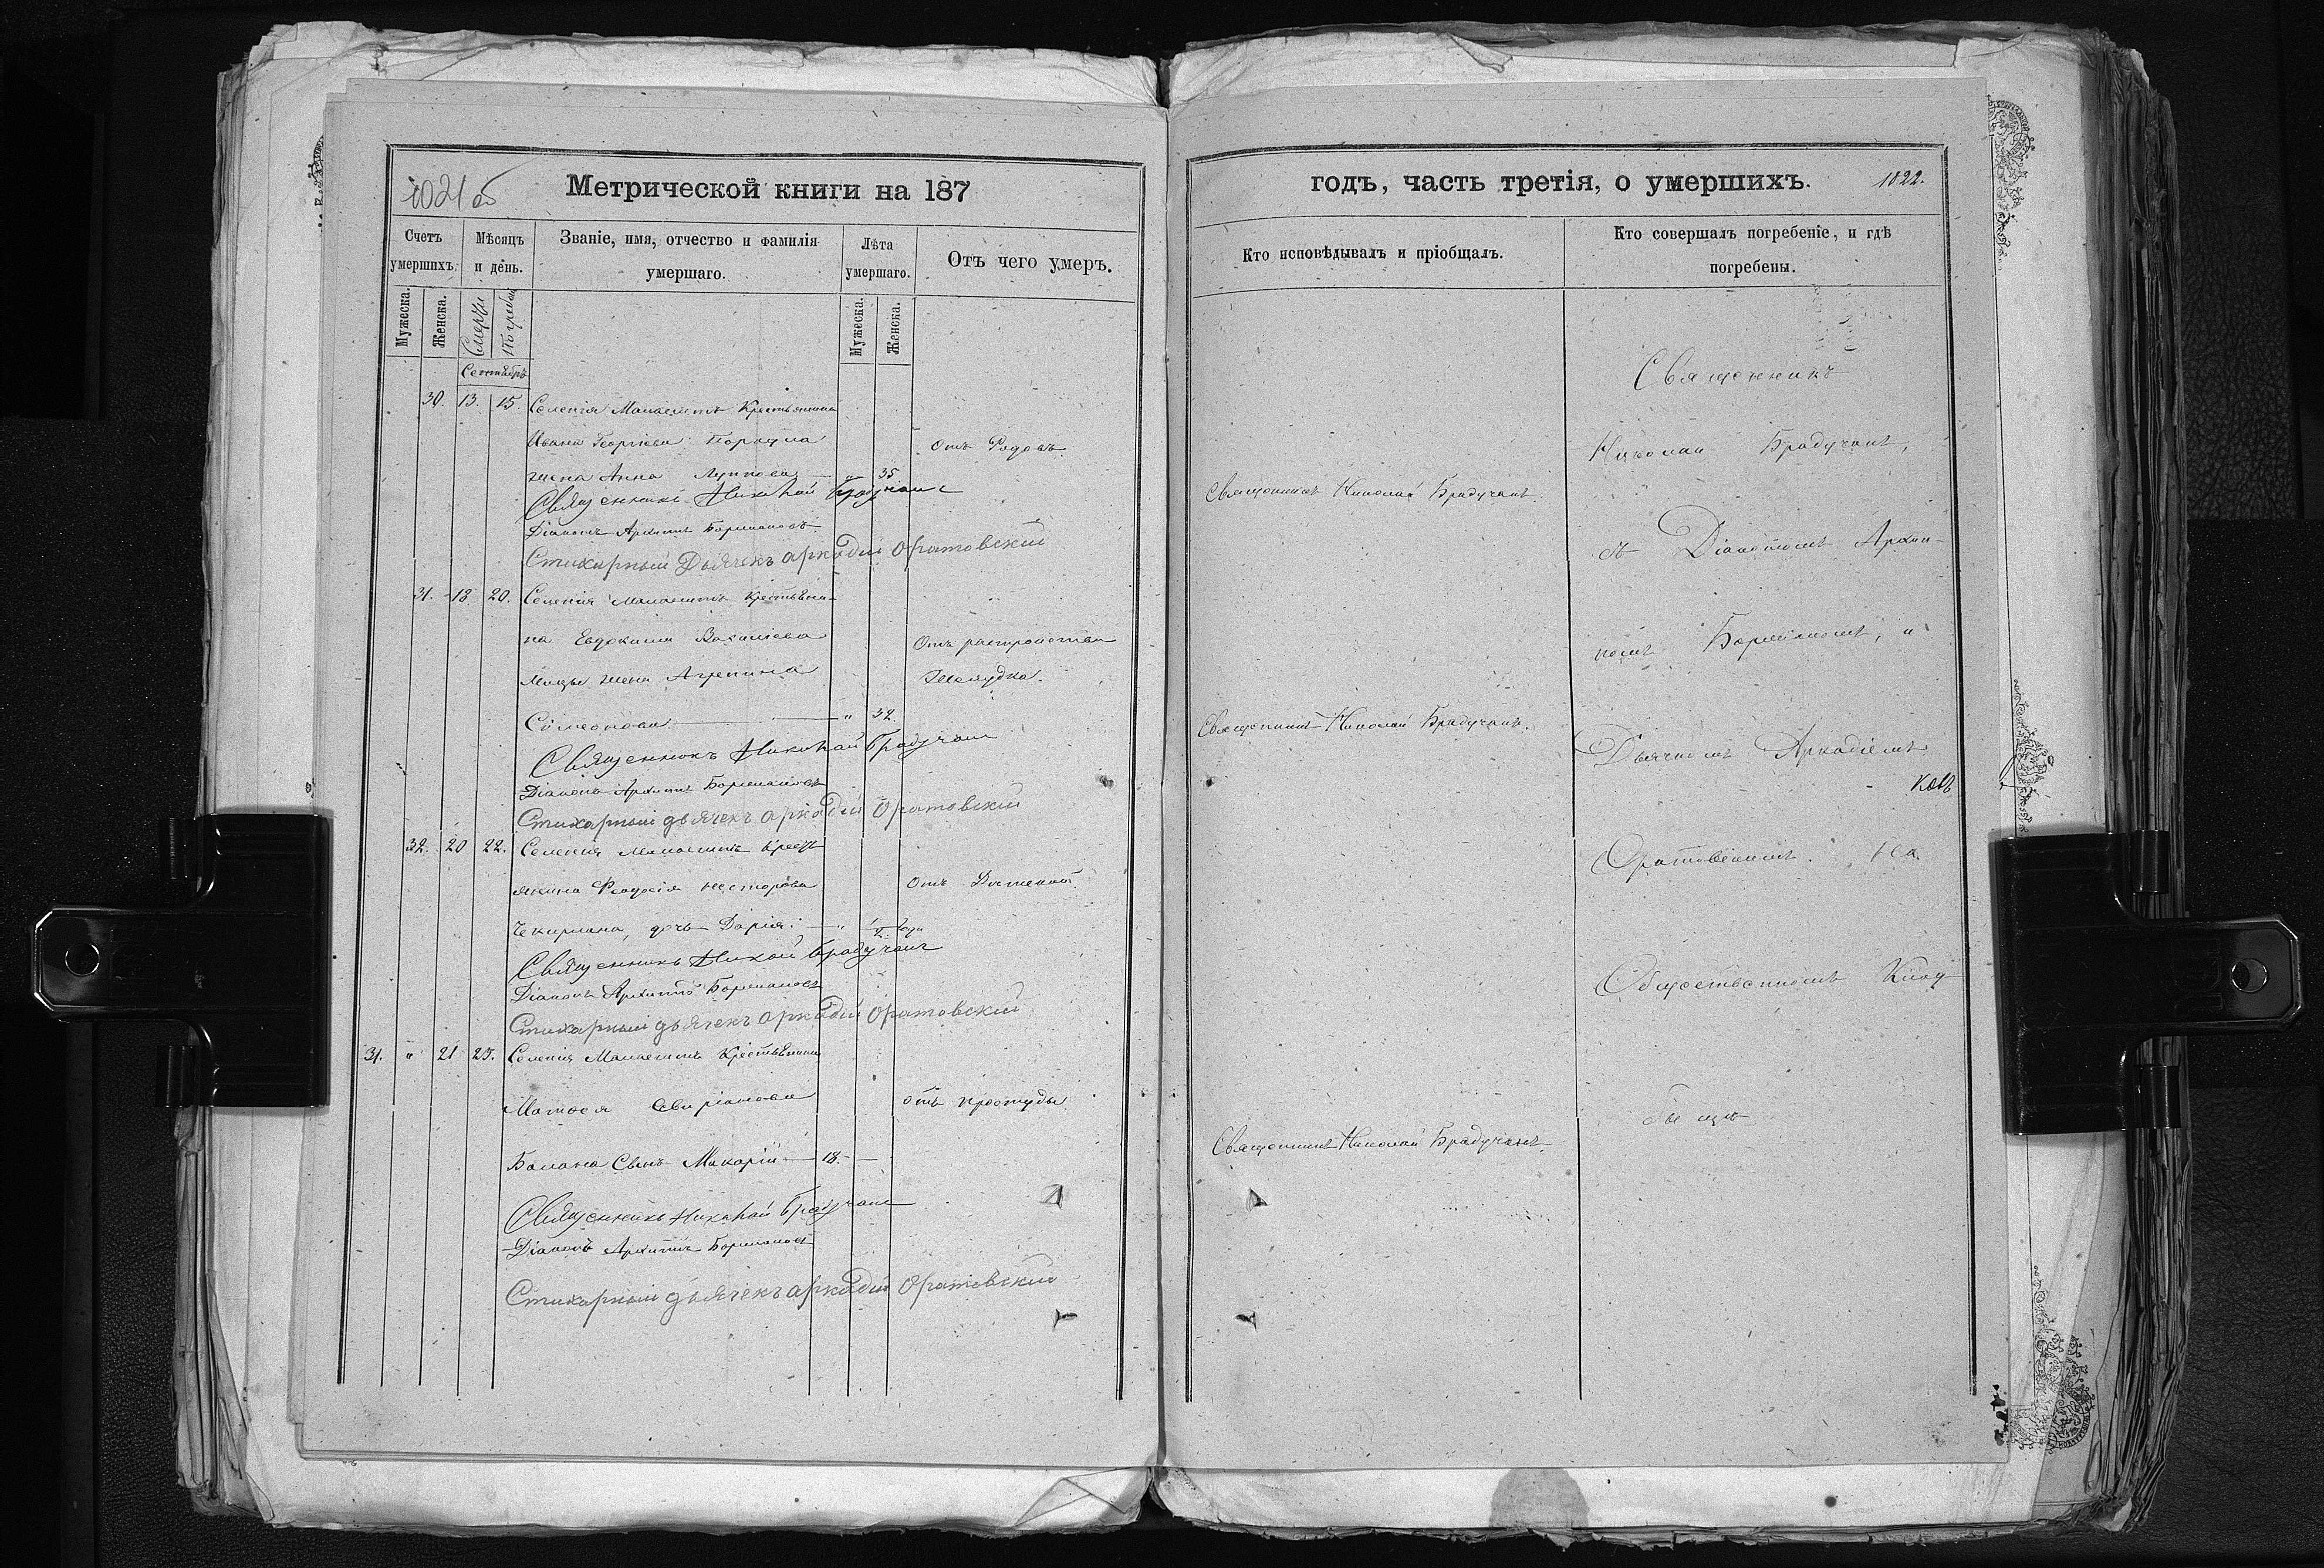 1021 об
Метрической книги на 187
Счетъ умершихъ.
Мѣсяцъ и день.
Званіе, имя, отчество и фамилія умершаго.
Лѣта умершаго.
Отъ чего умеръ.
Мужеска.
Женска.
Смерти
Погребен
Мужеска.
Женска.
Сентябрь
30. 13. 15. Селенія Малаештъ Крестьянина
Ивана Георгіева
Отъ Родовъ
жена Анна Лупкова — " 35
Священникъ Николай Брадучанъ
Діаконъ Архипъ Боршаковъ
Стихарный Дьячекъ Аркадій Оратовскій
31. 18. 20. Селенія Малаештъ Крестьяни-
на Евдокима Василіева
Отъ растройства
жена Агрепина
Желудка.
Симеонова — " 32.
Священникъ Николай Брадучанъ
Діаконъ Архипъ Боршаковъ
Стихарный дьячекъ Аркадій Оратовскій
32. 20 22. Селенія Малаештъ Крест
янина Феодосія Несторова
Отъ
Чекирлана, дочь Дарія. — " 1/2 года
Священникъ Николай Брадучанъ
Діаконъ Архипъ Боршаковъ
Стихарный дьячекъ Аркадій Оратовскій
31. " 21 23. Селенія Малаештъ Крестьянина
Матѳея Свиріанова
отъ простуды
Балана Сынъ Макарій — 18. —
Священникъ Николай Брадучанъ
Діаконъ Архипъ Боршаковъ
Стихарный дьячекъ Аркадій Оратовскій
годъ, часть третія, о умершихъ.
1022.
Кто исповѣдывалъ и пріобщалъ.
Кто совершалъ погребеніе, и гдѣ погребены.
Священникъ
Николай Брадучанъ,
Священникъ Николай Брадучанъ.
съ Діакономъ Архи-
помъ Боршаковъ, и
Священникъ Николай Брадучанъ.
Дьячкомъ Аркадіемъ
Оратовскимъ. на
Общественномъ Клад
бищѣ
Священникъ Николай Брадучанъ.